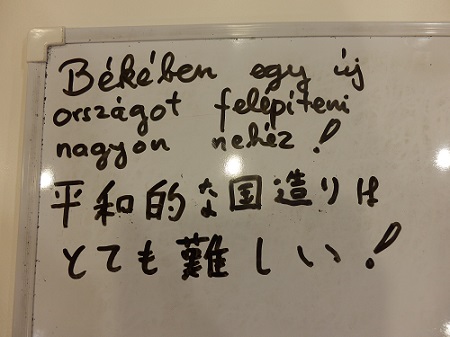 Békében egy új
országot felépíteni
nagyon nehéz!
平和的な国造りは
とても難しい!